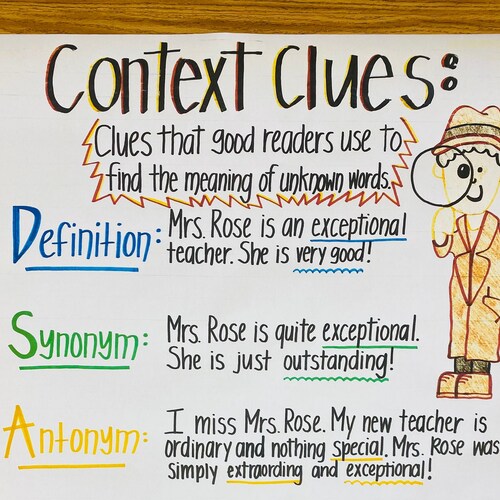 Context Clues:
Clues that good readers use to
find the meaning of unknown words.
Definition: Mrs. Rose is an exceptional
teacher. She is very good!
Synonym: Mrs. Rose is quite exceptional.
She is just outstanding!
Antonym: I miss Mrs. Rose. My new teacher is
ordinary and nothing special. Mrs. Rose was
simply extraording and exceptional!